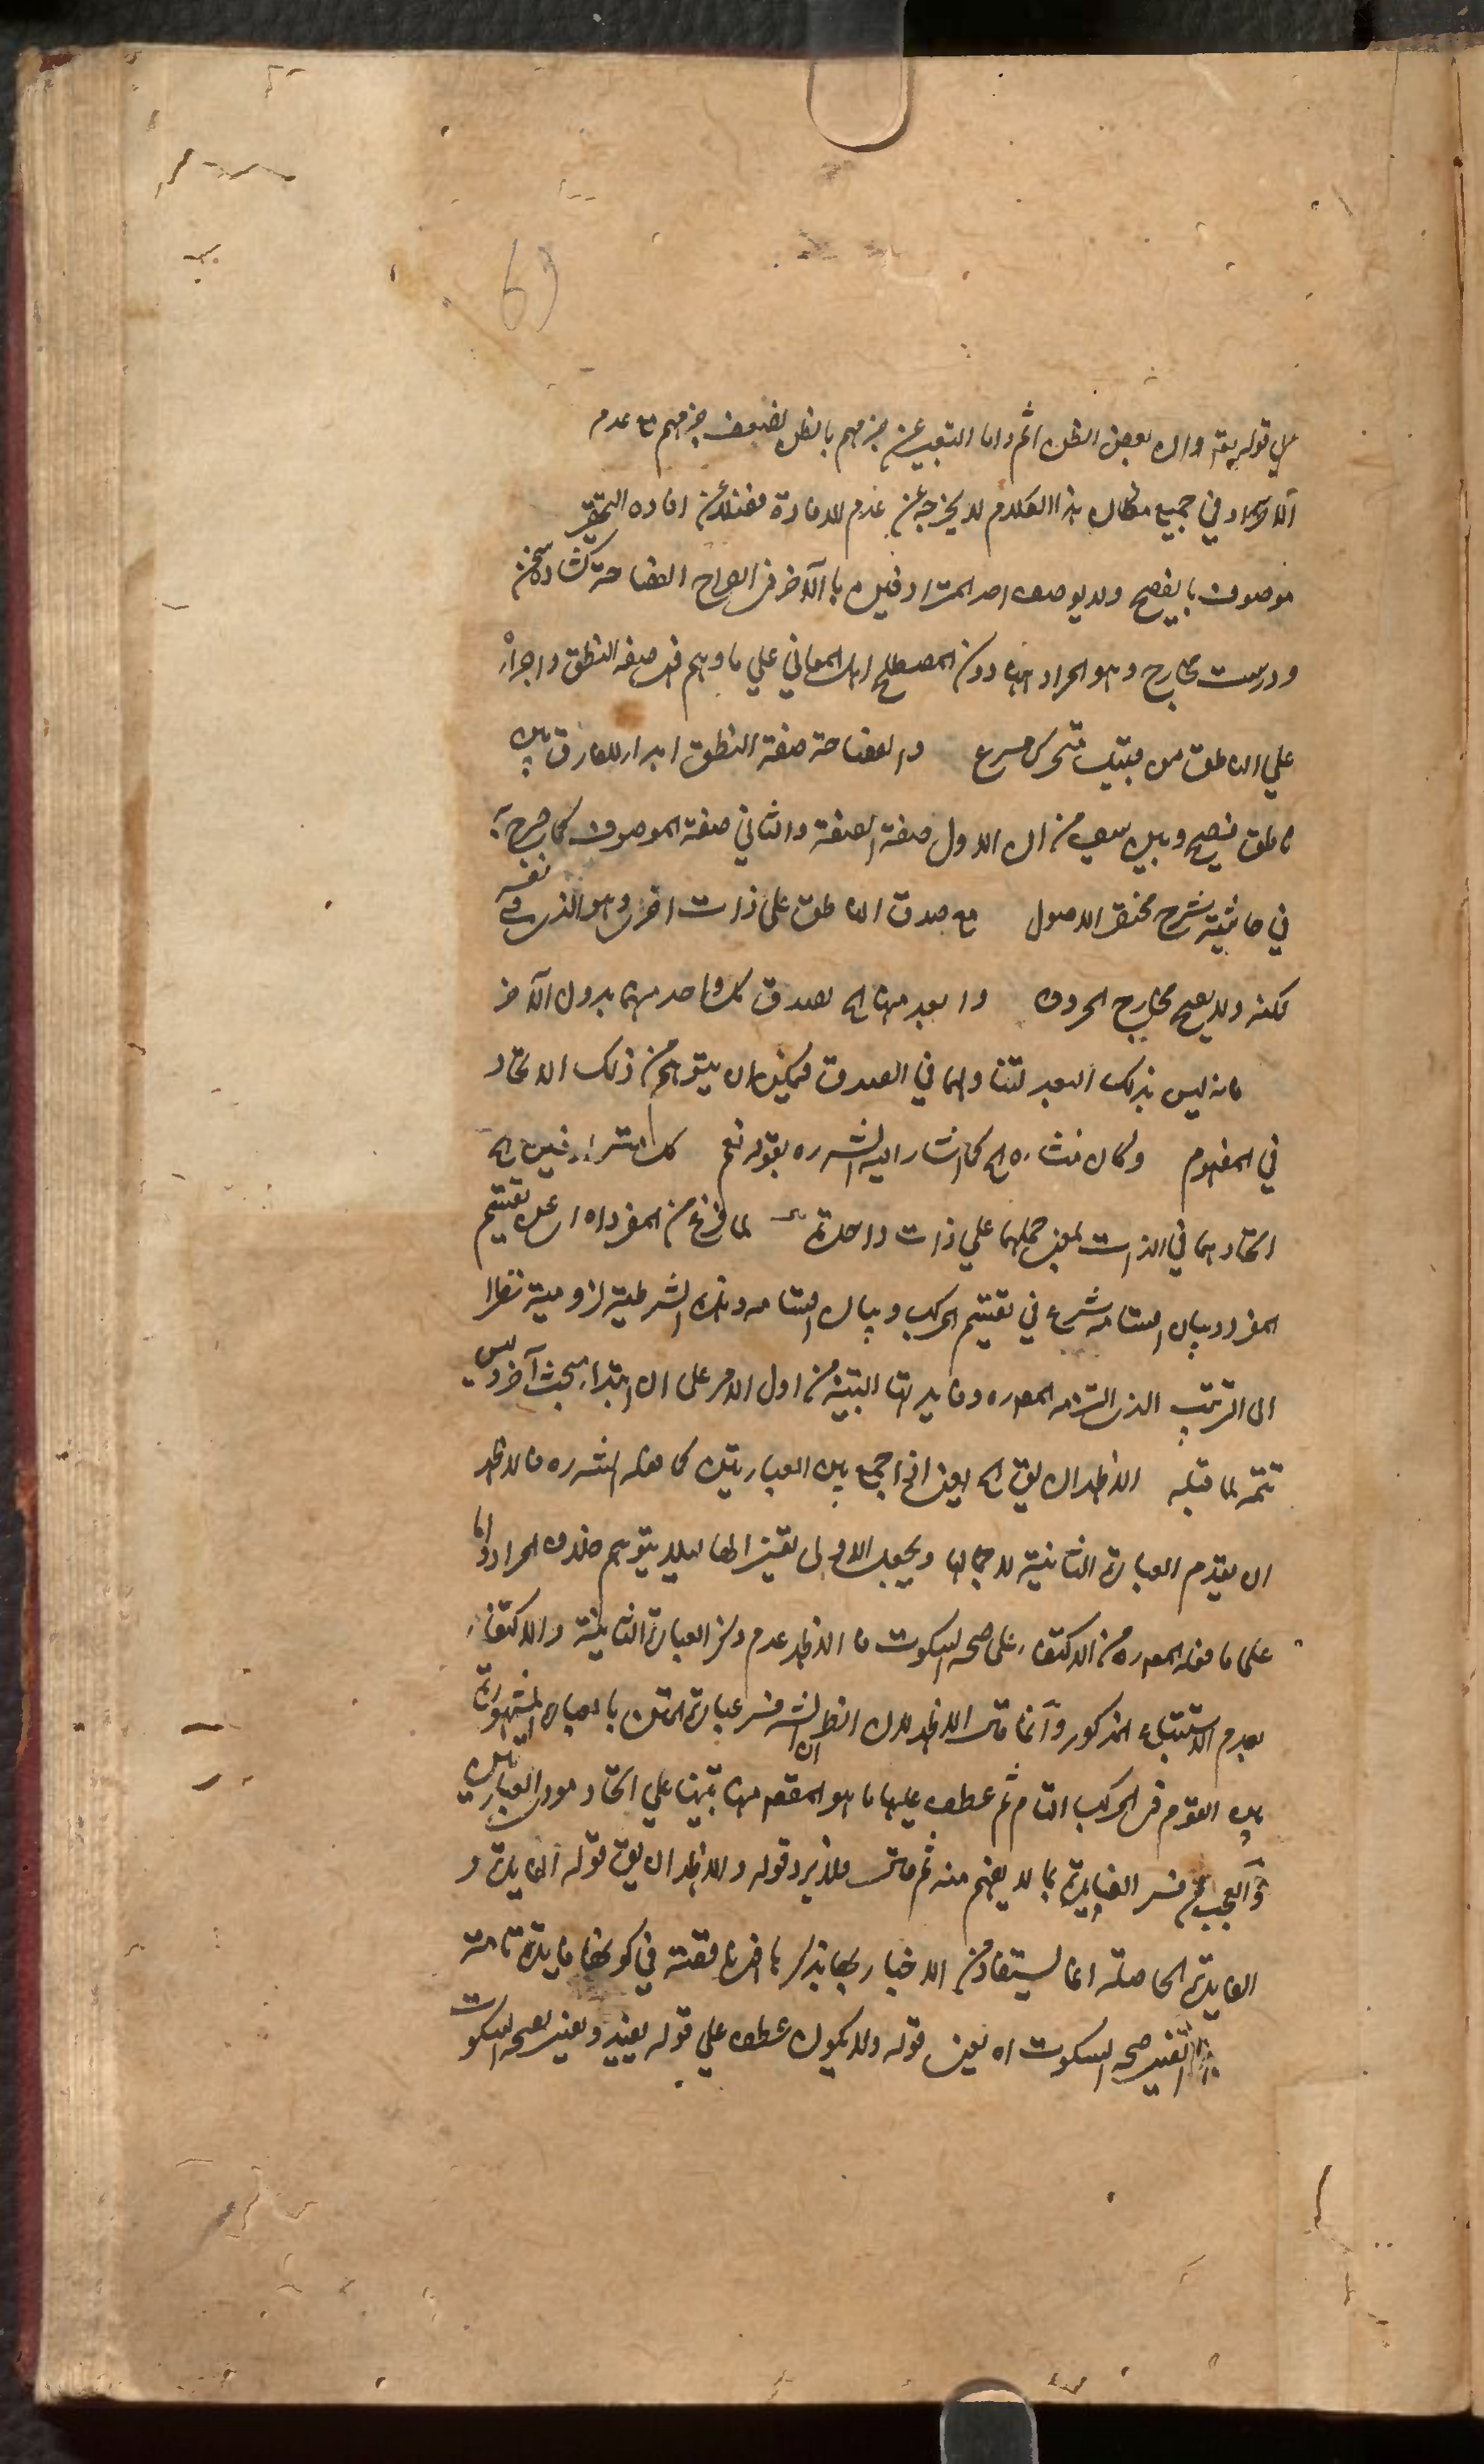 6)
علي قوله تع وان بعض الظن اثم واما التعبير عن جزمهم بالظن لضعف جزمهم مع عدم
في جميع مظان هذا الكلام لا يخرجه عن عدم الافادة فضلا عن افادة اليقين
موصوف بالفصيح ولا يوصف احد المترادفين بالآخر في الصراح الفصاحة كشاده سخن
ودرست مخارج وهو المراد ههنا دون المصطلح اهل المعاني علي ما وهم فى صفة النطق واجراؤه
علي الناطق من قبيل متحرك مسرع والفصاحة صفة النطق ابداء للفارق بين
ناطق فصيح وبين سيف من ان الاول صفة الصفة والثاني صفة الموصوف كما صرح به
في حاشية شرح مختصر الاصول مع صدق الناطق على ذات اخرى وهو الذي في نفسه
لكنه ولا يصح مخارج الحروف وابعد منه الخ لصدق كل واحد منهما بدون الآخر
فانه ليس بذلك البعد لتناولهما في الصدق فيمكن ان يتوهم من ذلك الاتحاد
في المفهوم وكان منشاه الخ كما اشار اليه الشه ره بقوله نعم كل مترادفين الخ
اتحادهما في الذات بمعنى حملهما علي ذات واحدة لما فرغ من المفرد اه اي عن تقسيم
المفرد وبيان اقسامه شرع في تقسيم المركب وبيان اقسامه وهذه الشرطية لزومية نظرا
الى الترتيب الذي التزمه المص ره وفايدتها التنبيه من اول الامر على ان ابتداء مبحث آخر وليس
تتمة لما قبله الاظهر ان يق الخ يعني اذا جمع بين العبارتين كما فعله الشه ره فالاظهر
ان يقدم العبارة الثانية لاجمالها ويجعل الاولى تفسيرا لها لئلا يتوهم خلاف المراد واما
على ما فعله المص ره من الاكتفاء على صحة السكوت فالاظهر عدم ذكر العبارة الثانية والاكتفاء
بعدم الاستتباع المذكور وانما قال الاظهر لان الظ ان الشه فسر عبارة المتن بالعبارة المشهورة
بين القوم في المركب التام ثم عطف عليها ما هو المقص منها تنبيها علي اتحاد مودى العبارتين
والعجب من فسر الفايدة بما لا يفهم منه ثم قال فلا يرد قوله والاظهر ان يق قوله الفايدة و
الفايدة الحاصلة انما يستفاد من الاخبار بها بذكر ناقصة في كونها فايدة تامة
التفسير صحة السكوت اه يعني قوله ولا يكون عطف علي قوله يفيد ويعني بصحة السكوت